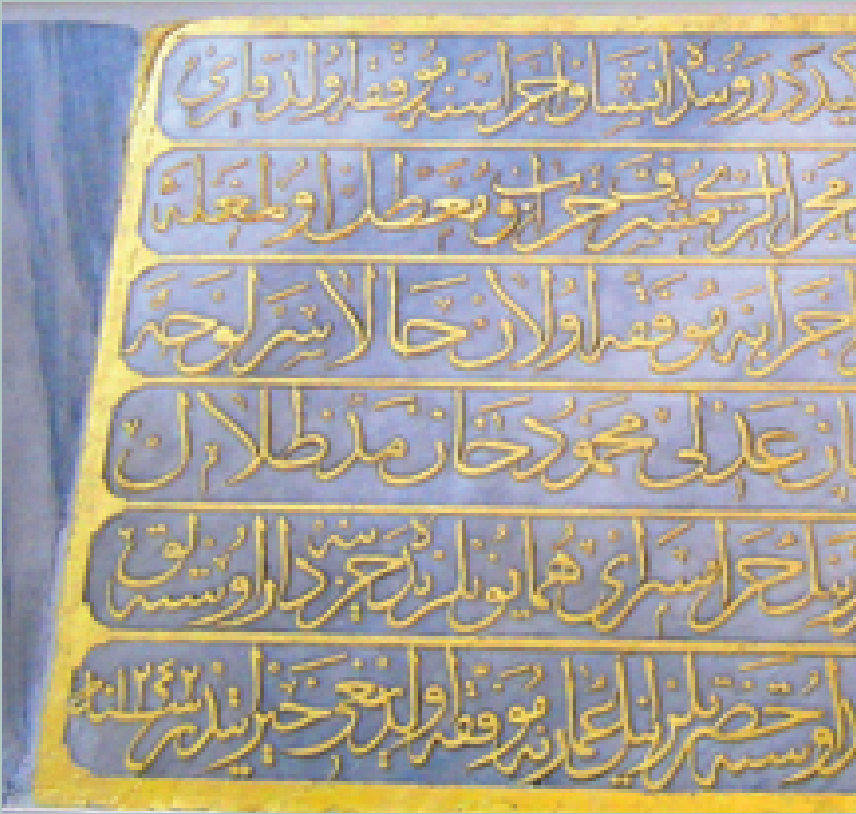 دروننده انشا و اجراسنه موفقه اولدقلری
مجرالری مشرف خراب و معطل اولمغله
اجرایه موفقه اولان حالا سرلوحه
عدلی محمود خان مد ظلال
حرا سرای همایونلرنده خزینه دار اوسته لق
اوسته حضرتلرینك عمارنه موفقه اولدیغی خیراتیدر سنه ١٢٤٢